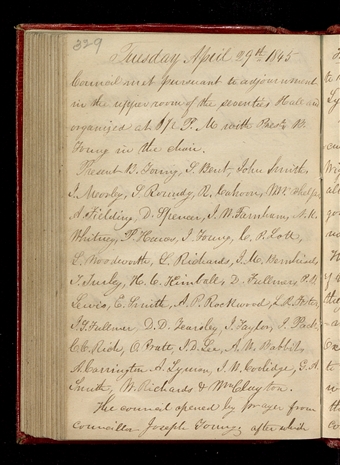 329
Tuesday April 29th 1845
Council met pursuant to adjournment
in the upper room of the seventies Hall and
organized at P. M with Prest B.
Young in the chair.
Present B. Young, S. Bent, John Smith,
I. Morley, S. Roundy, R. Cahoon, W. W. Phelps
A. Fielding, D. Spencer, J. W. Farnham, N. K.
Whitney, P. Haws, J. Young, C. P. Lott,
E. Woodworth, L. Richards, J. M. Bernhisel,
T. Turley, H. C. Kimball, D. Fullmer, P. B.
Lewis, E. Smith, A. P. Rockwood, L. R. Foster,
J. S. Fullmer, D. D. Yearsley, J. Taylor, J. Pack,
C. C. Rich, O. Pratt, J. D. Lee, A. W. Babbitt,
A. Carrington A. Lyman, J. W. Coolidge, G. A.
Smith, W. Richards & Wm Clayton.
The council opened by prayer from
councillor Joseph Young, after which